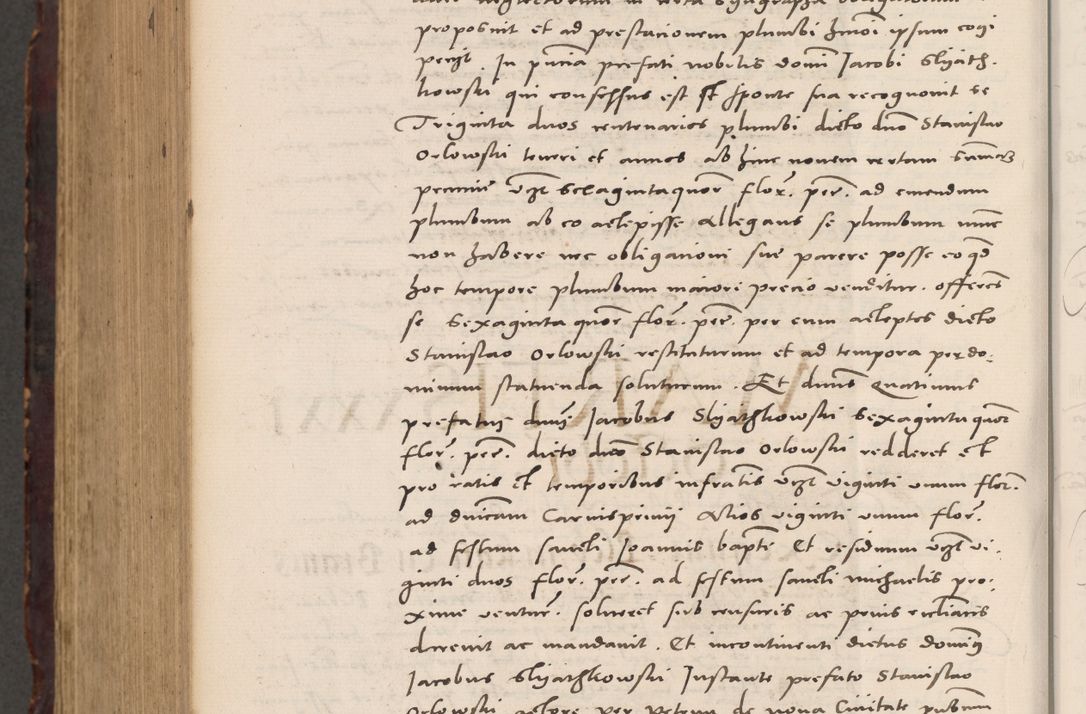 proposuit et ad prestacionem plumbi hmoi ipsum cogi
petijt. In pntia prefati nobilis domi Jacobi Slyath-
kowski qui confessus est et sponte sua recognovit se
Triginta duos centenarios plumbi dicto dno Stanislao
Orlowski teneri et annos ab hinc novem certam summam
pecunie vczt Sexagintaquor flor. per. ad emendum
plumbum ab eo accepisse Allegans se plumbum nunc
non habere nec obligationi sue parere posse eo qd
hoc tempore plumbum maiore precio venditur. offerens
se Sexaginta quor flor. per. per eum acceptos dicto
Stanislao Orlowski restituturum et ad tempora per do-
minum statuenda soluturum. Et dnus Quatinus
prefatus dnus Jacobus Slyathkowski Sexagintaquor
flor. per. dicto dno Stanislao Orlowski redderet et
pro ratis et temporibus infratis vczt viginti unum flor.
ad dnicam Carnisprivii Alios viginti unum flor.
ad festum sancti Joannis bapte Et residuum vczt vi-
ginti duos flor. per. ad festum sancti michaelis pro-
xime ventur. solveret sub censuris ac penis ecclianis
decrevit ac mandavit. Et incontinenti dictus dominus
Jacobus Slyathkowski Instante prefato Stanislao
Orlowski actore per Petrum de nova Civitate